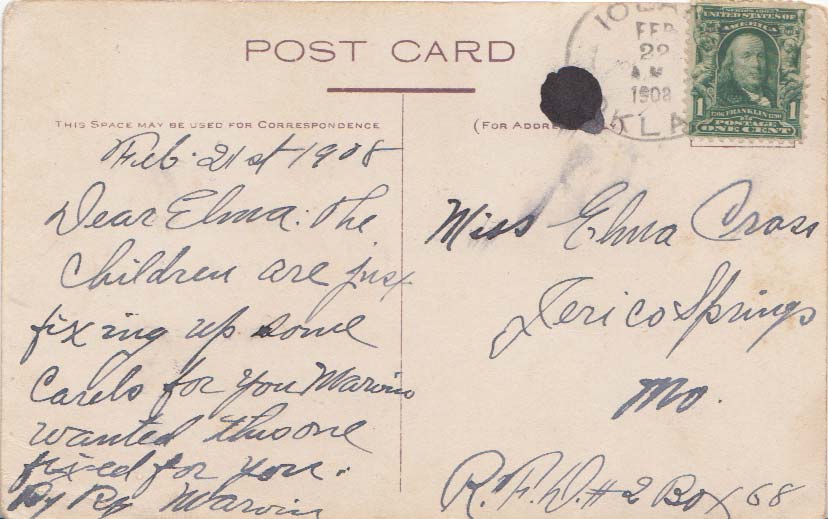 POST CARD
THIS SPACE MAY BE USED FOR CORRESPONDENCE
Feb. 21st 1908
Dear Elma: The
Children are just
fixing up some
Cards for you Marvin
wanted this one
fixed for you.
By By Marvin
(FOR ADDRE
Miss Elma Cross
Jerico Springs
Mo.
R.F.D. #2 Box 68
FEB
22
A.M.
1908
OKLA
SERIES 1902
UNITED STATES OF
AMERICA
1 FRANKLIN 1
POSTAGE
ONE CENT